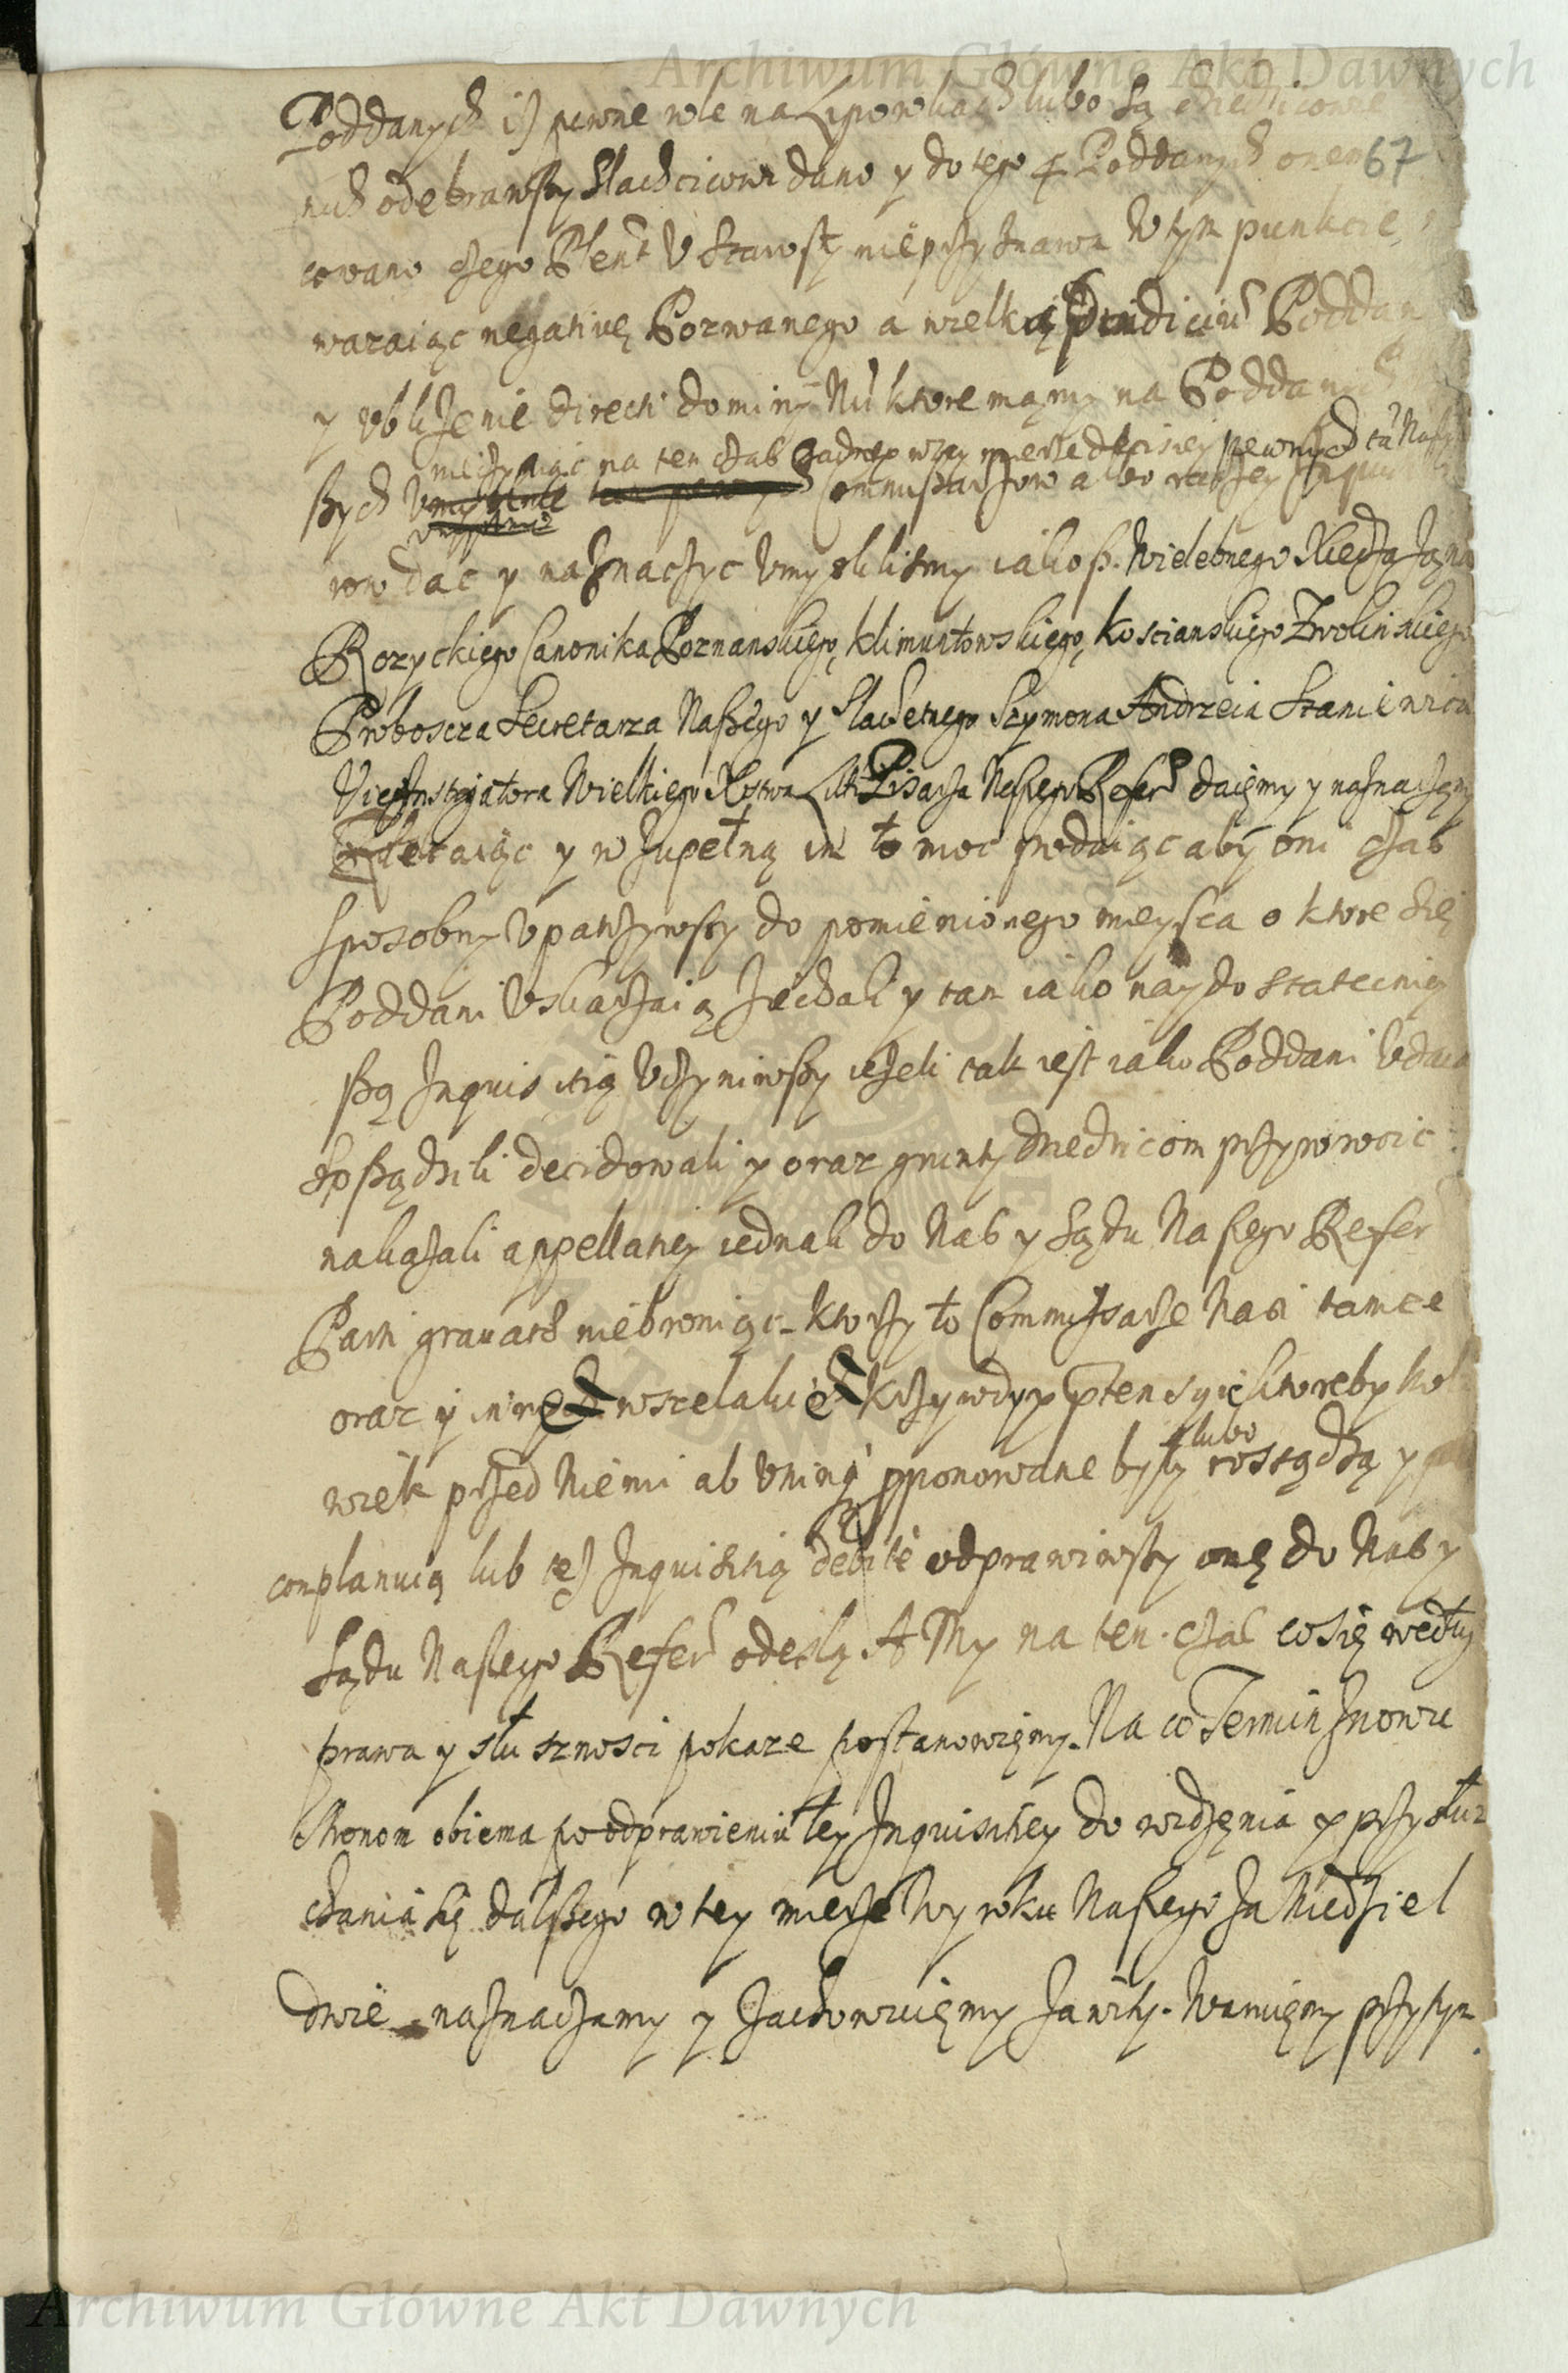 Archiwum Główne Akt Dawnych
Poddanych iż pewne role na Lipowkach lubo są
nich odebrawszy Slachcicowi dano y do tego 4 Poddanych onem
67
cowano czego Plent V Starosty nieprzyznawa W tym punkcie
ważaiąc negativę Pozwanego a wielką Poddan
y vbliżenie directi dominij Nri ktore mamy na Poddanych
nieczyniąc na ten czas żadney wtey mierze decisiey pewnych
szych Commissarzow albo raczey
row dac y naznaczyc Vmyslilismy iako sz. Wielebnego Xiędza Jana
Rozyckiego Canonika Poznanskiego, Klimuntowskiego, Koscianskiego Zwolinskiego
Proboscza Secretarza Naszego y Slachetnego Szymona Andrzeia Staniewicza
ViceInstigatora Wielkiego Xstwa Litt Pisarza Naszego Refer daiemy y naznaczamy
Zlecaiąc y w zupełną im to moc podaiąc aby oni czas
sposobny Vpatrzywszy do pomienionego mieysca o ktore się
Poddani Vskarzaią Ziechali y tam iako naydostateczniey
szą Inquisitią Vczyniwszy ieżeli tak iest iako Poddani Vdaią
osządzili decidowali y oraz grunty Dziedzicom przywrocic
nakazali appellatiey iednak do Nas y Sądu Naszego Refer
Parti gravatae niebroniąc. Ktorzy to Commissarze Nasi tamże
oraz y innych wszelakich krzywdy y ptensyie ktoreby kol
wiek przed Niemi ab Vninq' pponowane były lubo rossądzą y
complanuią lub też Inquisitią debite odprawiwszy onę do Nas y
Sądu Naszego Refer odeslą. A My na ten czas co się według
prawa y słuszności pokaże postanowiemy. Na co Termin znowu
Stronom obiema po odprawieniu tey Inquisitiey do widzenia y przysłu
chania się dalszego w tey mierze Wyroku Naszego za Niedziel
dwie naznaczamy y zachowuiemy zawity. Waruiemy przytym
Archiwum Główne Akt Dawnych